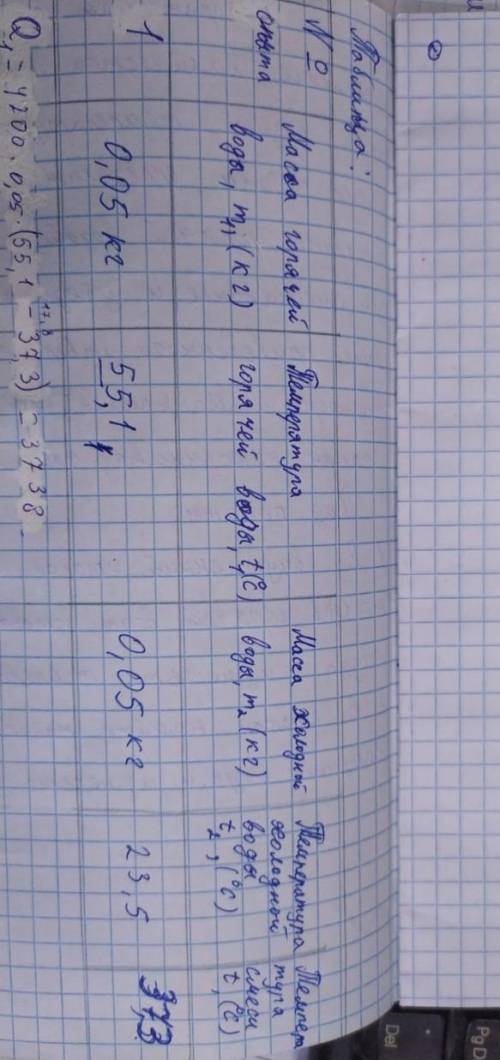 Таблица:
№ опыта
Масса горячей воды, m₁ (кг)
Температура горячей воды, t₁(С)
Масса холодной воды, m₂ (кг)
Температура холодной воды t₂, (°С)
Темпера тура смеси t, (°С)
1
0,05 кг
55,1
0,05 кг
23,5
37,3
17,8
Q₁ = 4200 · 0,05 · (55,1 - 37,3) = 3738
PgD
Del